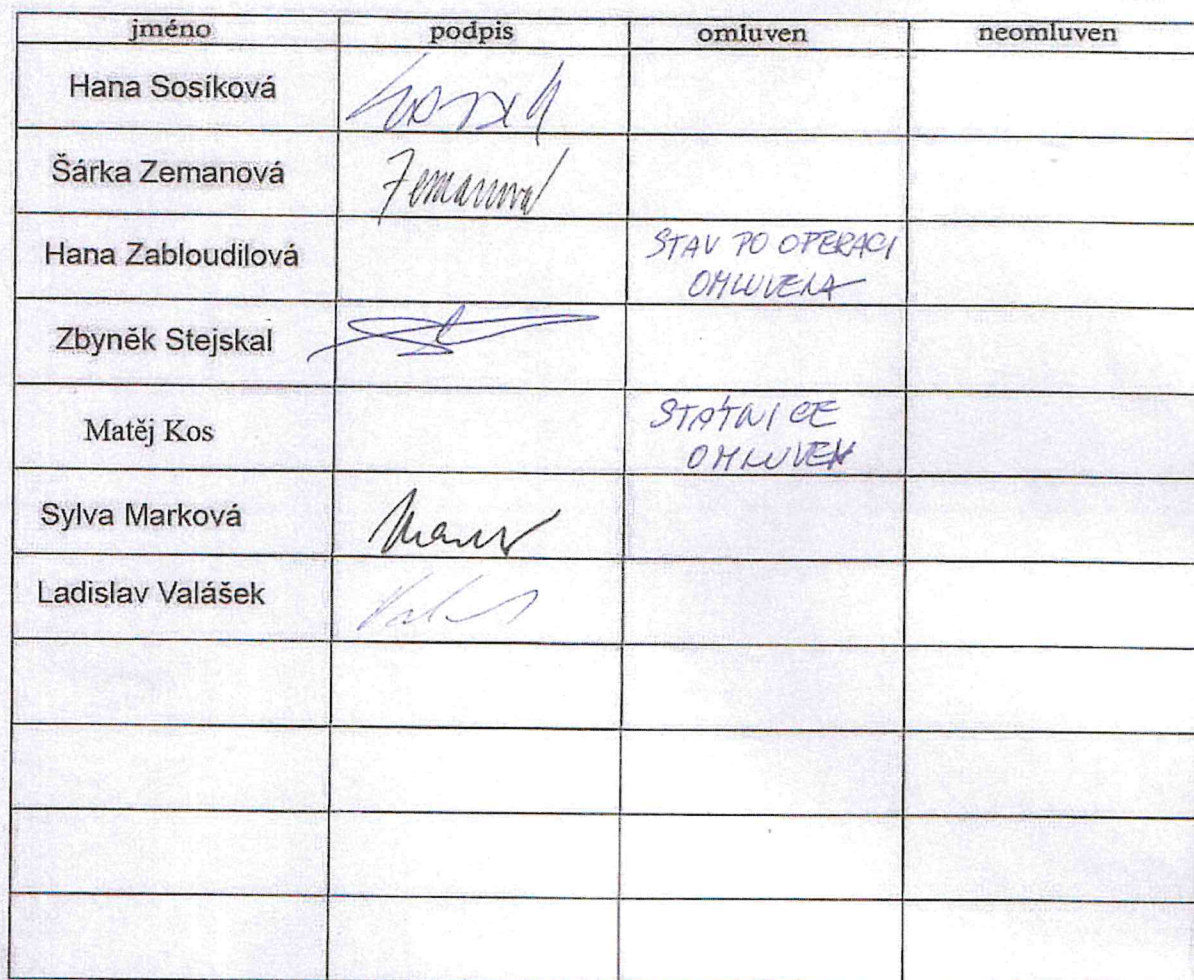 jméno podpis omluven neomluven
Hana Sosíková
Šárka Zemanová Zemanová
Hana Zabloudilová STAV PO OPERACI
OMLUVENA
Zbyněk Stejskal
Matěj Kos STÁTNICE
OMLUVEN
Sylva Marková
Ladislav Valášek